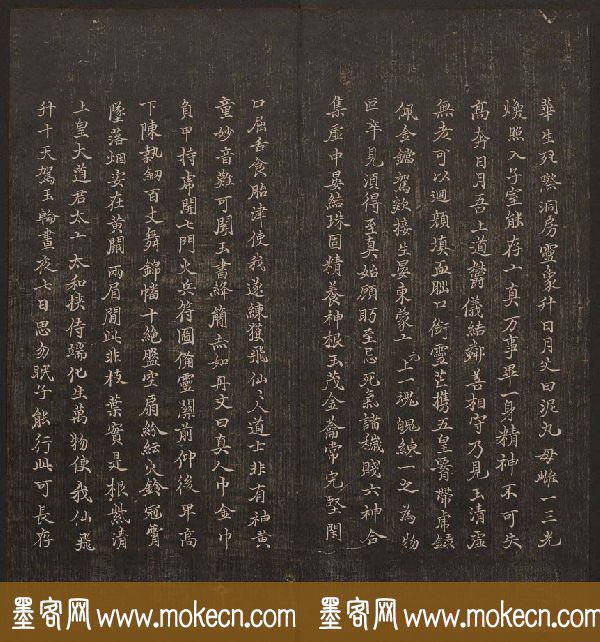 華生死無洞房靈象升日月父曰泥丸母雌一三光
煥照入子室能存一真万事畢一身精神不可失
高奔日月吾上道鬱儀結璘善相守乃見玉清虛
無老可以迴顏填血腦口銜靈芒攜五皇腎帶虎籙
佩金鐺駕欻接生晏東蒙一元上一魂魄練一之為物
叵卒見須得至真始顧眄至忌死氣諸穢賤六神合
集虛中晏結珠固精養神根玉茂金籥常完堅閇
口屈舌食胎津使我遂練獲飛仙仙人道士非有神黃
童妙音難可聞玉書絳簡赤如丹文曰真人巾金巾
負甲持虎開七門火兵符圖備靈關前仰後卑高
下陳執劒百丈舞錦幡十絕盤空扇紛紜火鈴冠霄
墜落烟安在黃闕兩眉間此非枝葉實是根紫清
上皇大道君太一太和俠侍端化生萬物使我仙飛
升十天駕玉輪晝夜七日思勿眠子能行此可長存
墨客网 www.mokecn.com 墨客网 www.mokecn.com